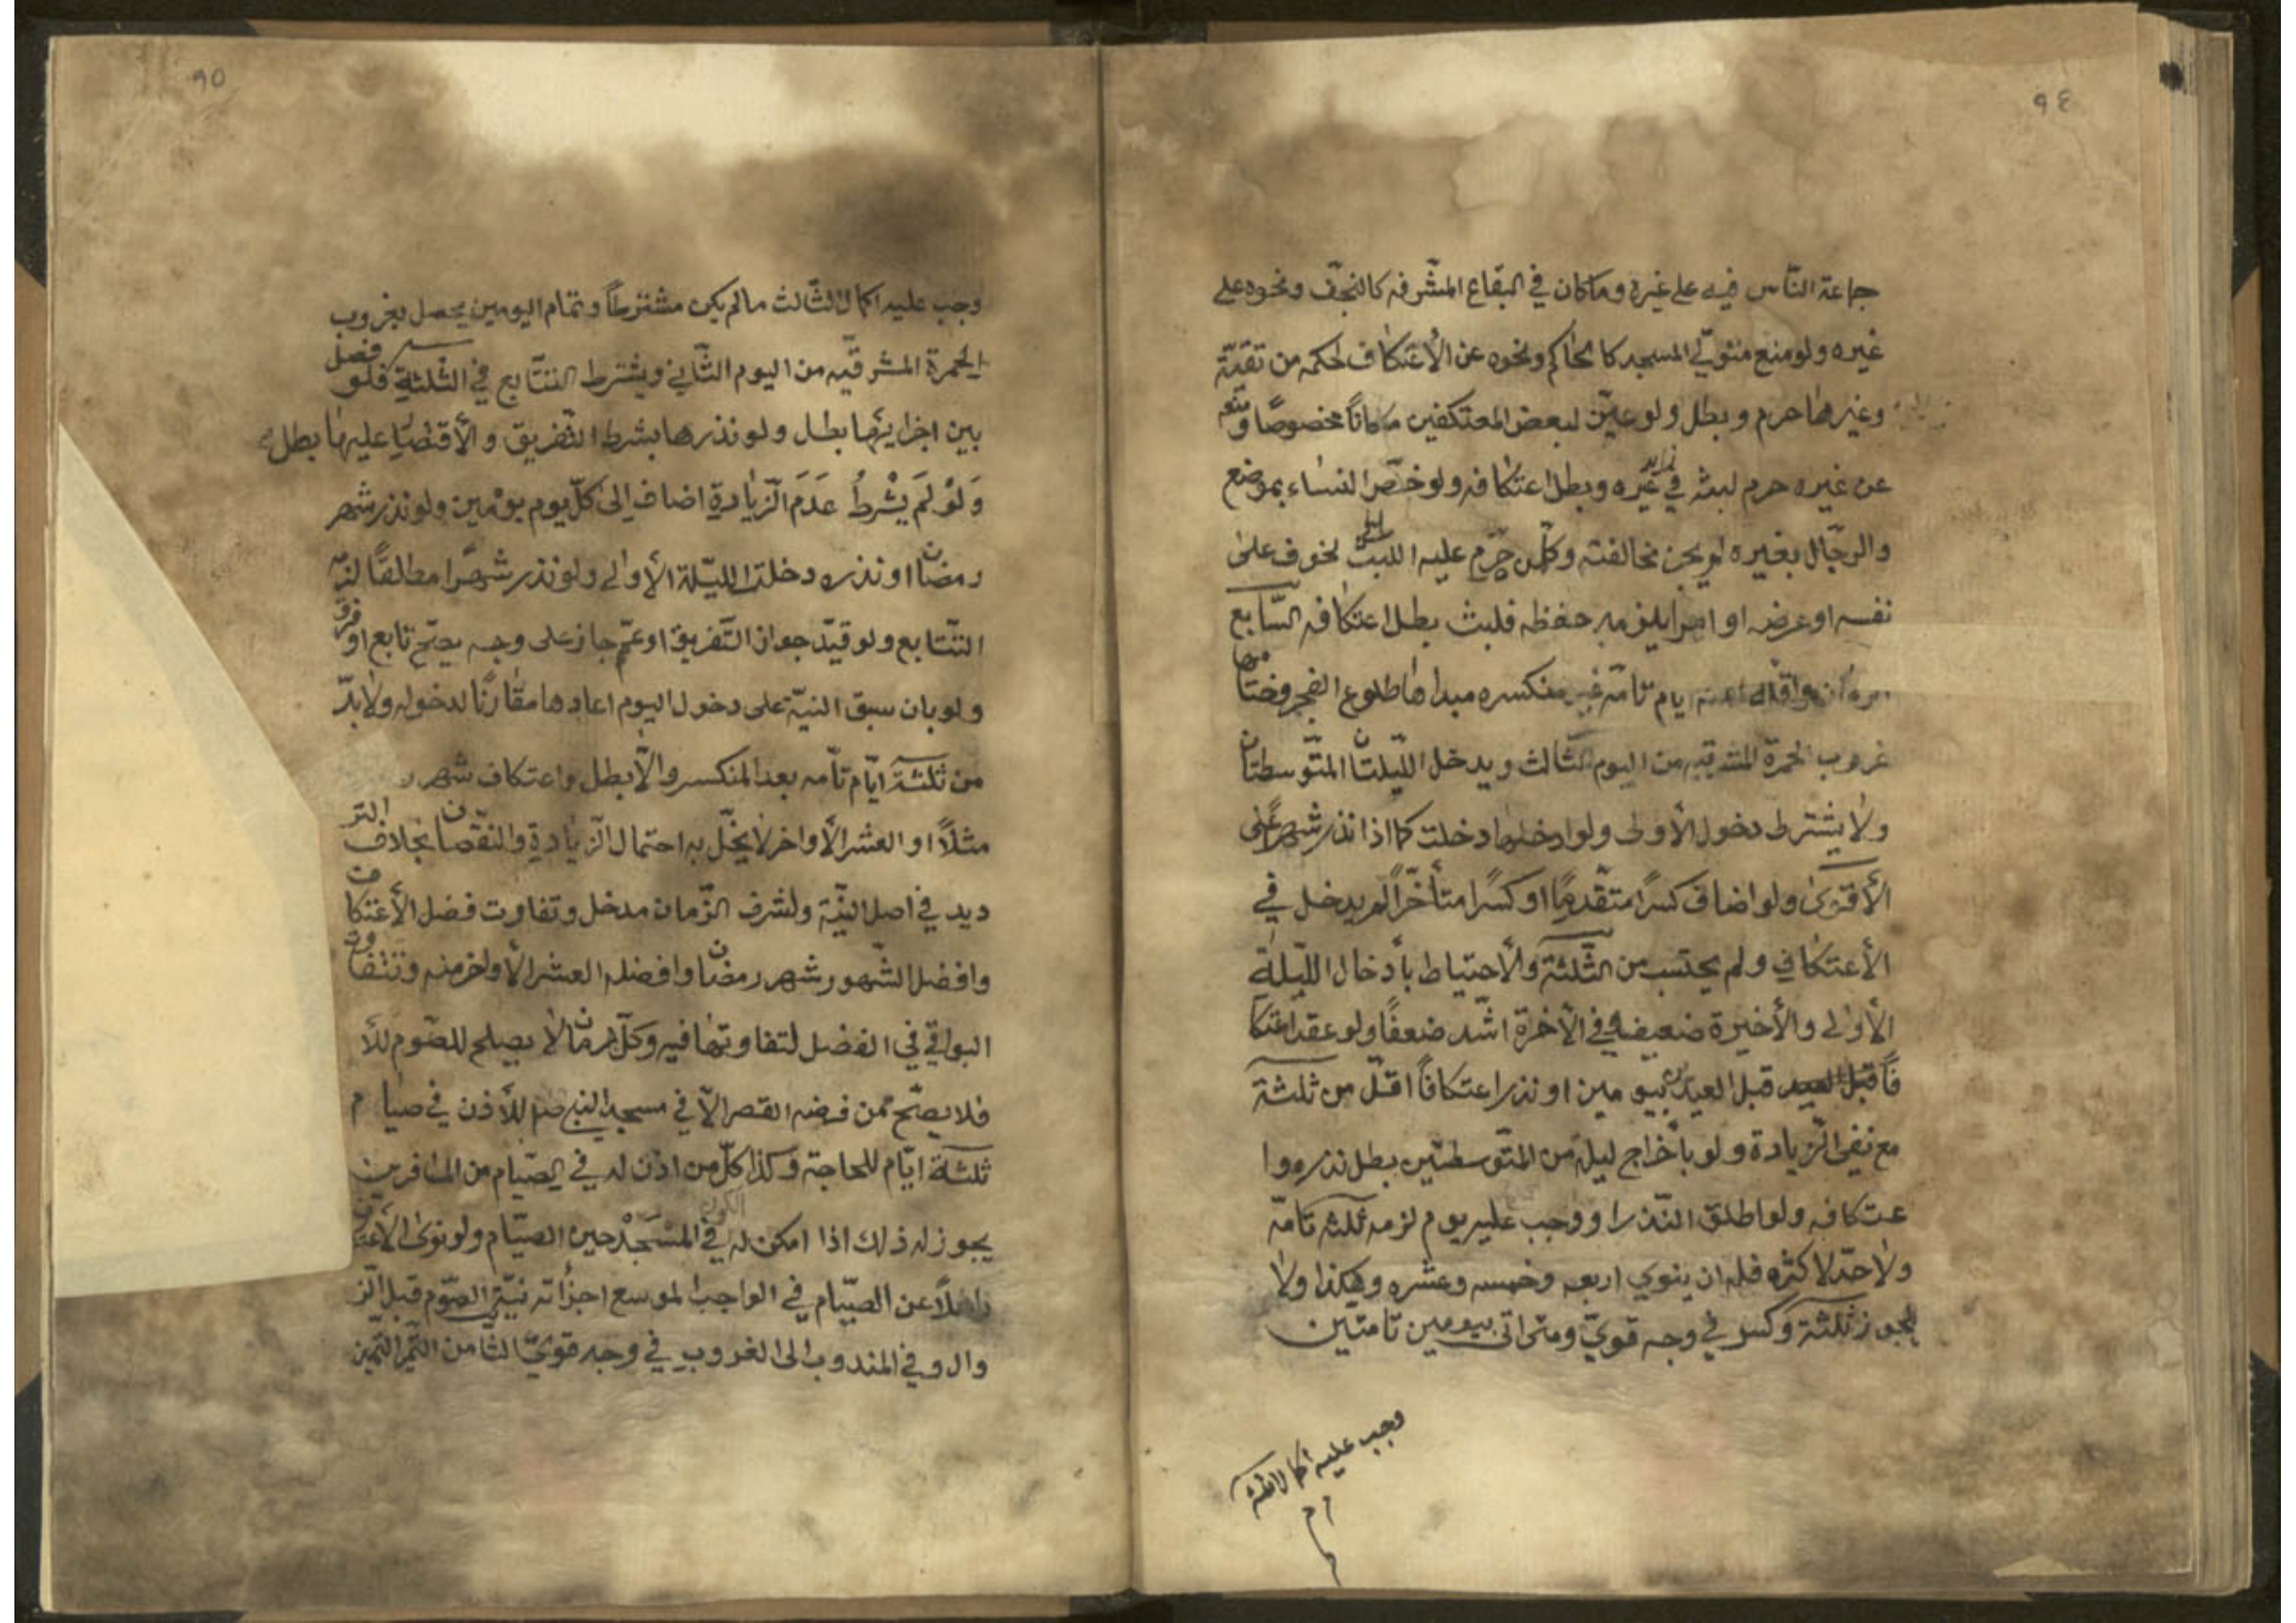 ٩٤
جماعة النّاس فيه على غيره وما كان في البقاع المشّرفه كالنّجف ونحوه على
غيره ولو منع متولّي المسجد كالحاكم ونحوه عن الأعتكاف لحكمه من تقيّة
وغيرها حرم وبطل ولو عيّن لبعض المعتكفين مكاناً مخصوصًا ومنعه
عن غيره حرم لبثه في غيره وبطل اعتكافه ولو خصّ النساء بموضع
والرجّال بغيره لم يجز مخالفته وكلّ من حرّم عليه اللبث لخوف على
نفسه او عرضه او امر يلزمه حفظه فلبث بطل اعتكافه السّابع
ايام تامّه غير منكسره مبداها طلوع الفجر وختامها
غروب الحمرة المشرقيه من اليوم الثّالث ويدخل الليّلتان المتّوسطتان
ولا يشترط دخول الأولى ولو ادخلها دخلت كما اذا نذر شهراً على
الأقوى ولو اضاف كسرًا متقّدمًا او كسرًا متأخّراً لم يدخل في
الأعتكاف ولم يحتسب من الثّلثة والأحتياط بأدخال الليّلة
الأولى والأخيرة ضعيف وفي الأخرة اشّد ضعفًا ولو عقد اعتكا
فاً قبل العيد قبل العيد بيومين او نذر اعتكافاً اقلّ من ثلثة
مع نفى الزّيادة ولو بأخراج ليلة من المتّوسطتين بطل نذره وا
عتكافه ولو اطلق النّذر او وجب عليه يوم لزمه ثلثه تامّه
ولا حدّ لاكثره فله ان ينوي اربعه وخمسه وعشره وهكذا ولا
يجوز ثلثة وكسر في وجه قويّ ومتى اتى بيومين تامتين
وجب عليه اكمال الثلثة
٩٥
وجب عليه اكمال الثّالث ما لم يكن مشترطاً وتمام اليومين يحصل بغروب
الحمرة المشرقيّه من اليوم الثّاني ويشترط التتّابع في الثلثة فلو فصل
بين اجزائها بطل ولو نذرها بشرط التّفريق والأقتصار عليها بطل
وَلَوْ لَمْ يَشْرطُ عَدَمَ الزّيادةِ اضاف الى كلّ يوم يومين ولو نذر شهر
رمضان او نذره دخلت الليّلة الأولى ولو نذر شهرًا مطلقًا لزمه
التتّابع ولو قيّد جواز التّفريق او عمّم جاز على وجه يصحّ تابع او فرق
ولو بان سبق النيّة على دخول اليوم اعادها مقارنًا لدخوله ولا بدّ
من ثلثة ايّام تامّه بعد المنكسر والاّ بطل واعتكاف شهر
مثلاً او العشر الأواخر لا يخّل به احتمال الزّيادة والنقّصان بخلاف التر
ديد في اصل النيّة ولشرف الزّمان مدخل وتفاوت فضل الأعتكاف
وافضل الشّهور شهر رمضان وافضله العشر الأواخر منه وتتفاوت
البواقي في الفضل لتفاوتها فيه وكلّ زمان لا يصلح للصّوم للأ
فلا يصّح ممن فرضه القصر الاّ في مسجد النبي صلم للأذن في صيام
ثلثة ايّام للحاجة وكذا كلّ من اذن له في الصّيام من المسافرين
يجوز له ذلك اذا امكن له الكون في المسْجَدْ حين الصيّام ولو نوى الأعتكاف
ذاهلاً عن الصيّام في الواجب الموسع اجزأته نيّة الصّوم قبل الز
وال وفي المندوب الى الغروب في وجه قويّ الثامن التّميز التميز